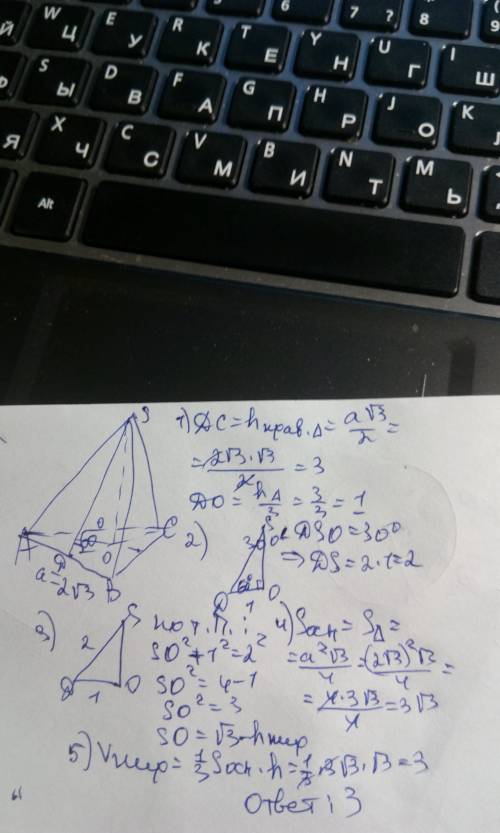 Й W Ц E У R К T Е Y Н U Г I Ш
6 7 ? 8 9
S Ы D В F А G П H Р J О K
Я X Ч C С V М B И N Т M Ь
Alt
S
A D B C O
a=2√3
1) DC = h прав. Δ = a√3/2 =
= 2√3·√3/2 = 3
DO = hΔ/3 = 3/3 = 1
2) ∠DSO = 30°
⇒ DS = 2·1 = 2
S 30° 60° D 1 O
3) S 2 D 1 O
по т. П. :
SO² + 1² = 2²
SO² = 4 - 1
SO² = 3
SO = √3 - h пир
4) Sосн = SΔ =
= a²√3/4 = (2√3)²√3/4 =
= 4·3√3/4 = 3√3
5) Vпир = 1/3 Sосн · h = 1/3 · 3√3 · √3 = 3
Ответ: 3